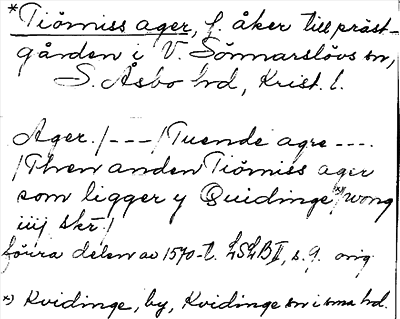 *Tiömiss ager, f. åker till präst-
gården i V. Sönnarslövs sn,
S. Åsbo hd, Krist. l.
Ager. / --- / Tuende agre ----
/ Then anden Tiömiss ager
som ligger y Quidinge *) wong
iiij skr. /
Förra delen av 1570-t. LSLB II, s. 9. orig
*) Kvidinge, by, Kvidinge sn i sma hd.